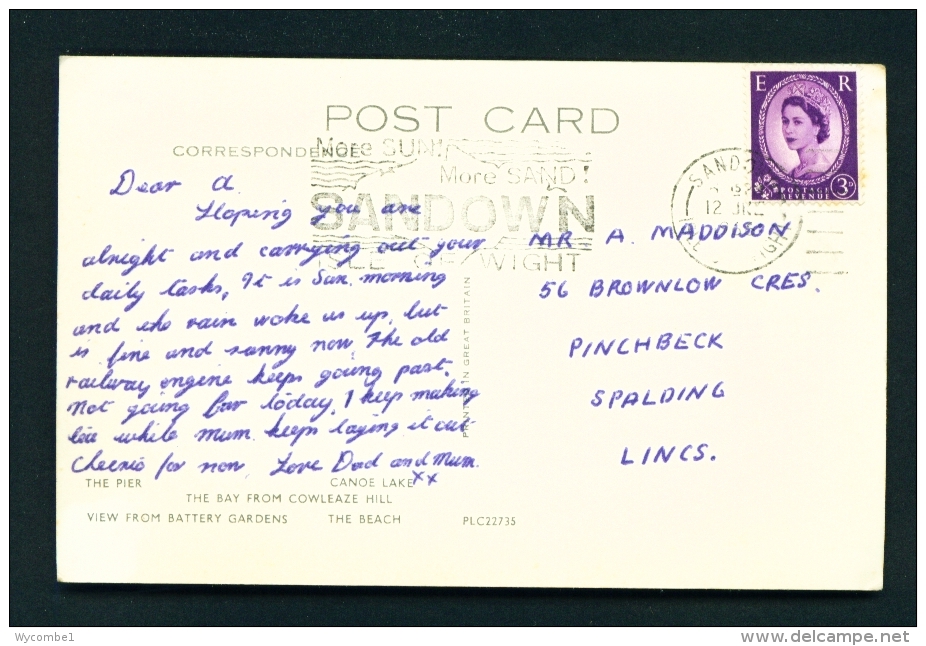 POST CARD
CORRESPONDENCE
More SUN!
More SAND!
SANDOWN
ISLE OF WIGHT
E R
POSTAGE
REVENUE
3D
SANDOWN
12 JNE
Dear A.
Hoping you are
alright and carrying out your
daily tasks, It is Sun. morning
and the rain woke us up, but
is fine and sunny now, The old
railway engine keeps going past.
Not going far today, I keep making
tea while Mum keeps laying it out
Cheerio for now, Love Dad and Mum.
xx
MR A. MADDISON
56 BROWNLOW CRES.
PINCHBECK
SPALDING
LINCS.
PRINTED IN GREAT BRITAIN
THE PIER CANOE LAKE
THE BAY FROM COWLEAZE HILL
VIEW FROM BATTERY GARDENS THE BEACH PLC22735
Wycombe1
www.delcampe.net